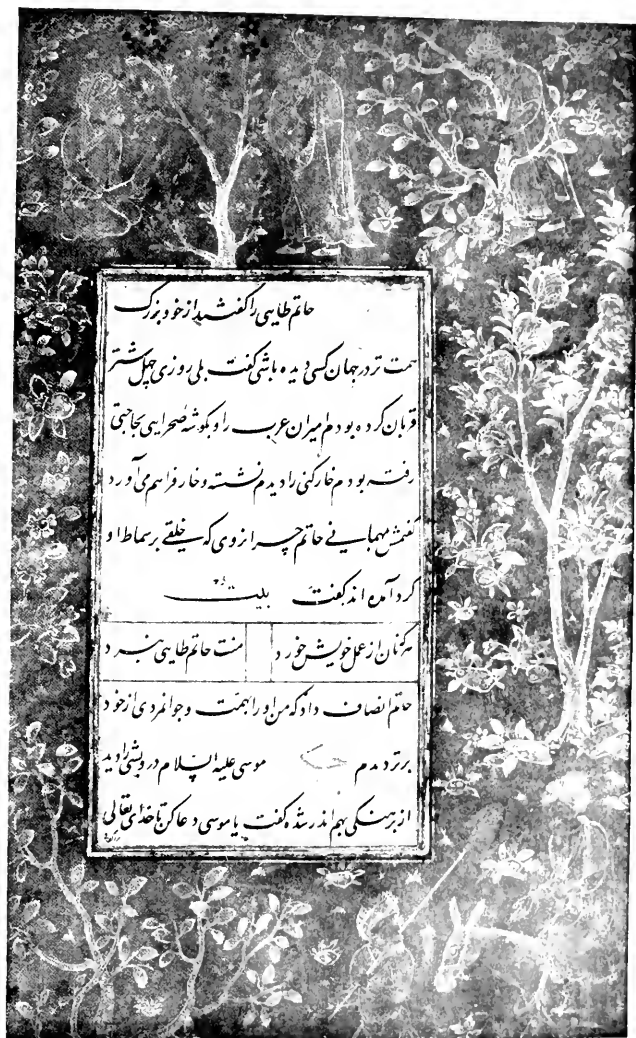 حاتم طایی را گفتند از خود بزرگ
همت تر در جهان کسی دیده باشی گفت بلی روزی چهل شتر
قربان کرده بودم امیران عرب را و بگوشه صحرایی بحاجتی
رفته بودم خارکنی را دیدم نشسته و خار فراهم می آورد
گفتمش بمهمانی حاتم چرا نروی که خلقی بر سماط او
گرد آمده اند گفت بیت
هر که نان از عمل خویش خورد منت حاتم طایی نبرد
حاتم انصاف داد که من او را بهمت و جوانمردی از خود
برتر دیدم موسی علیه السلام درویشی را دید
از برهنگی بهم اندر شده گفت یا موسی دعا کن تا خدای تعالی